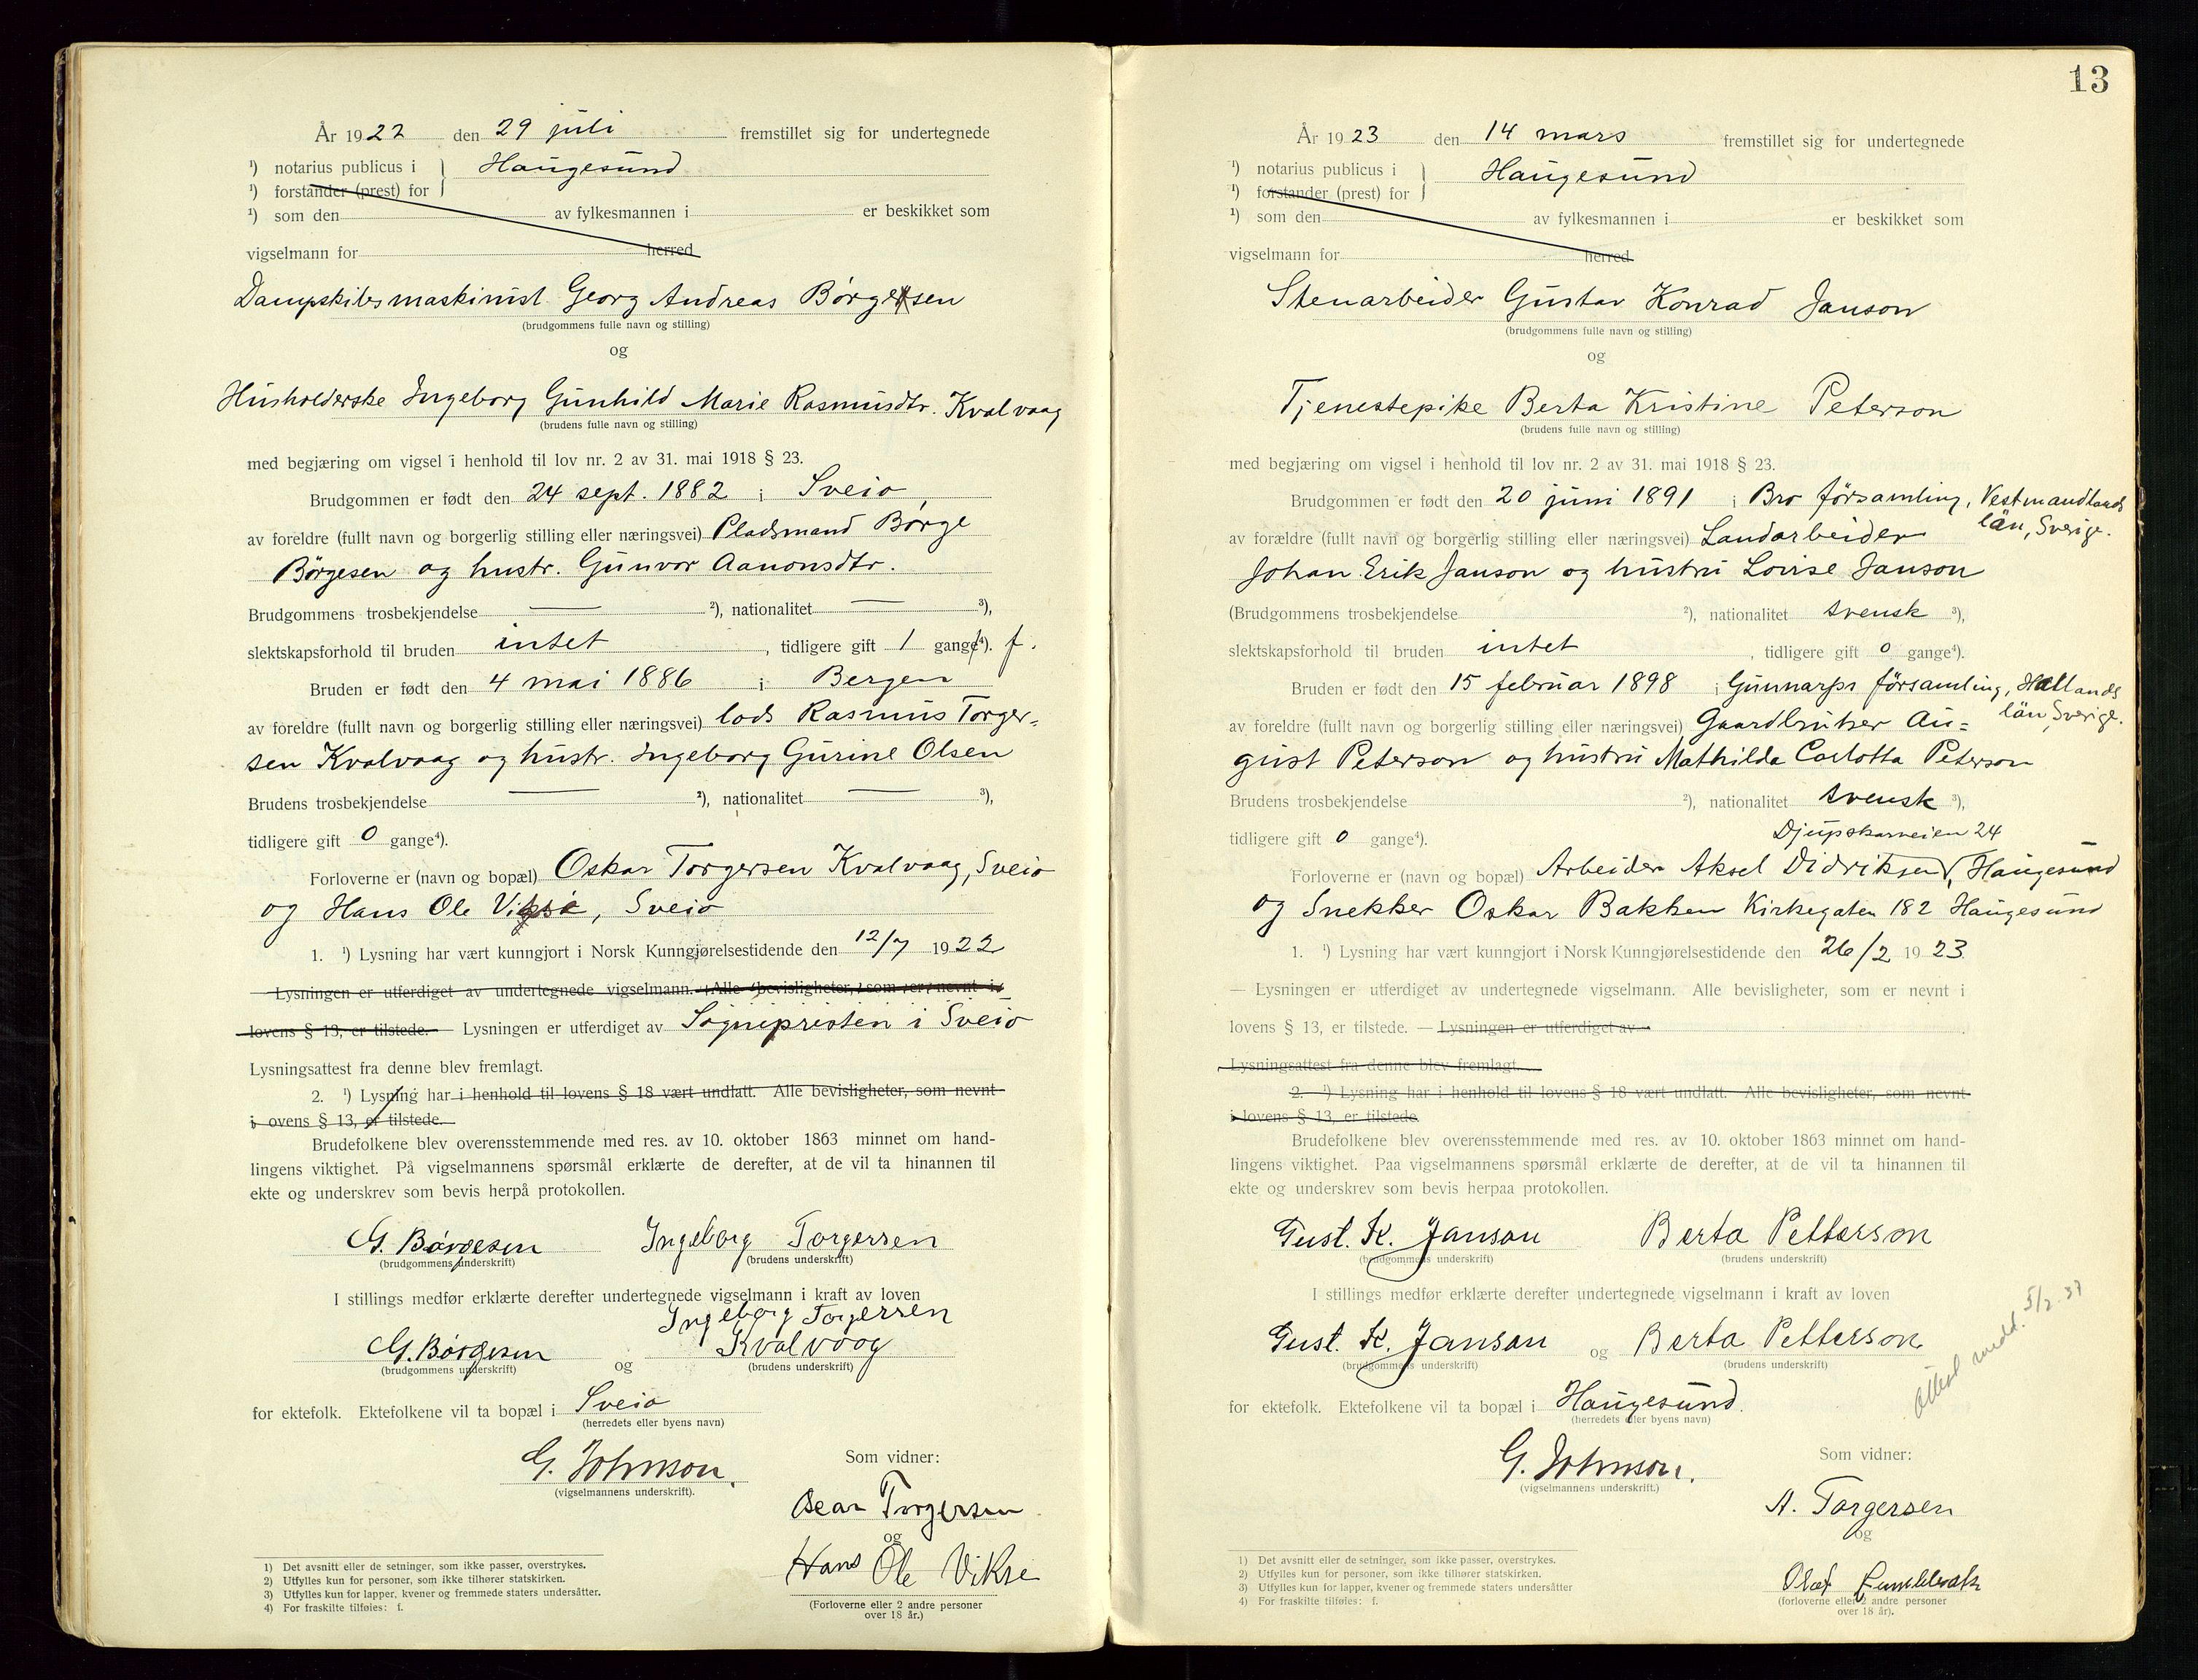 År 1922 den 29 juli fremstillet sig for undertegnede
¹) notarius publicus i } Haugesund
¹) forstander (prest) for
¹) som den av fylkesmannen i er beskikket som
vigselmann for herred
Dampskibsmaskinist Georg Andreas Børgesen
(brudgommens fulle navn og stilling)
og
Husholderske Ingeborg Gunhild Marie Rasmusdtr. Kvalvaag
(brudens fulle navn og stilling)
med begjæring om vigsel i henhold til lov nr. 2 av 31. mai 1918 § 23.
Brudgommen er født den 24 sept. 1882 i Sveio,
av foreldre (fullt navn og borgerlig stilling eller næringsvei) Pladsmand Børge
Børgesen og hustr. Gunvor Aanonsdtr.
Brudgommens trosbekjendelse — ²), nationalitet — ³),
slektskapsforhold til bruden intet, tidligere gift 1 gange⁴). f.
Bruden er født den 4 mai 1886 i Bergen
av foreldre (fullt navn og borgerlig stilling eller næringsvei) lods Rasmus Torger=
sen Kvalvaag og hustr. Ingeborg Gurine Olsen
Brudens trosbekjendelse — ²), nationalitet — ³),
tidligere gift 0 gange⁴).
Forloverne er (navn og bopæl) Oskar Torgersen Kvalvaag, Sveio
og Hans Ole , Sveio
1. ¹) Lysning har vært kunngjort i Norsk Kunngjørelsestidende den 12/7 1922
— Lysningen er utferdiget av undertegnede vigselmann. Alle bevisligheter, som er nevnt i
lovens § 13, er tilstede. — Lysningen er utferdiget av Sognepresten i Sveio
Lysningsattest fra denne blev fremlagt.
2. ¹) Lysning har i henhold til lovens § 18 vært undlatt. Alle bevisligheter, som nevnt
i ovens § 13, er tilstede.
Brudefolkene blev overensstemmende med res. av 10. oktober 1863 minnet om hand-
lingens viktighet. På vigselmannens spørsmål erklærte de derefter, at de vil ta hinannen til
ekte og underskrev som bevis herpå protokollen.
G. Børgesen Ingeborg Torgersen
(brudgommens underskrift) (brudens underskrift)
I stillings medfør erklærte derefter undertegnede vigselmann i kraft av loven
Ingeborg Torgersen
G. Børgesen og Kvalvaag
(brudgommens underskrift) (brudens underskrift)
for ektefolk. Ektefolkene vil ta bopæl i Sveio
(herredets eller byens navn)
G. Johnson.
(vigselmannens underskrift).
Som vidner:
Oscar Torgersen
og
Hans Ole Vikse
(Forloverne eller 2 andre personer
over 18 år.)
1) Det avsnitt eller de setninger, som ikke passer, overstrykes.
2) Utfylles kun for personer, som ikke tilhører statskirken.
3) Utfylles kun for lapper, kvener og fremmede staters undersåtter.
4) For fraskilte tilføies: f.
13
År 1923 den 14 mars fremstillet sig for undertegnede
¹) notarius publicus i } Haugesund
¹) forstander (prest) for
¹) som den av fylkesmannen i er beskikket som
vigselmann for herred
Stenarbeider Gustav Konrad Janson
(brudgommens fulle navn og stilling)
og
Tjenestepike Berta Kristine Peterson
(brudens fulle navn og stilling)
med begjæring om vigsel i henhold til lov nr. 2 av 31. mai 1918 § 23.
Brudgommen er født den 20 juni 1891 i Bro församling, Vestmandlands
län, Sverige.
av forældre (fullt navn og borgerlig stilling eller næringsvei) Landarbeider
Johan Erik Janson og hustru Lovise Janson
(Brudgommens trosbekjendelse ²), nationalitet svensk ³),
slektskapsforhold til bruden intet, tidligere gift 0 gange⁴).
Bruden er født den 15 februar 1898 i Gunnarps församling, Hallands
län, Sverige.
av foreldre (fullt navn og borgerlig stilling eller næringsvei) Gaardbruker Au=
gust Peterson og hustru Mathilda Carlotta Peterson
Brudens trosbekjendelse ²), nationalitet svensk ³),
tidligere gift 0 gange⁴). Djupskarveien 24
Forloverne er (navn og bopæl) Arbeider Aksel Didriksen, Haugesund
og Snekker Oskar Bakken Kirkegaten 182 Haugesund
1. ¹) Lysning har vært kunngjort i Norsk Kunngjørelsestidende den 26/2 1923
— Lysningen er utferdiget av undertegnede vigselmann. Alle bevisligheter, som er nevnt i
lovens § 13, er tilstede. — Lysningen er utferdiget av
Lysningsattest fra denne blev fremlagt.
2. ¹) Lysning har i henhold til lovens § 18 vært undlatt. Alle bevisligheter, som nevnt
i lovens § 13, er tilstede
Brudefolkene blev overensstemmende med res. av 10. oktober 1863 minnet om hand-
lingens viktighet. Paa vigselmannens spørsmål erklærte de derefter, at de vil ta hinannen til
ekte og underskrev som bevis herpaa protokollen.
Gust. K. Janson Berta Petterson
(brudgommens underskrift) (brudens underskrift)
I stillings medfør erklærte derefter undertegnede vigselmann i kraft av loven
Gust. K. Janson og Berta Petterson
(brudgommens underskrift) (brudens underskrift)
Attest medd. 5/2 37
for ektefolk. Ektefolkene vil ta bopæl i Haugesund.
(herredets eller byens navn)
G. Johnson.
(vigselmannens underskrift.)
Som vidner:
A. Torgersen
og
Olaf
(forloverne eller 2 andre personer
over 18 år).
1) Det avsnitt eller de setninger, som ikke passer, overstrykes.
2) Utfylles kun for personer, som ikke tilhører statskirken.
3) Utfylles kun for lapper, kvener og fremmede staters undersåtter
4) For fraskilte tilføies: f.